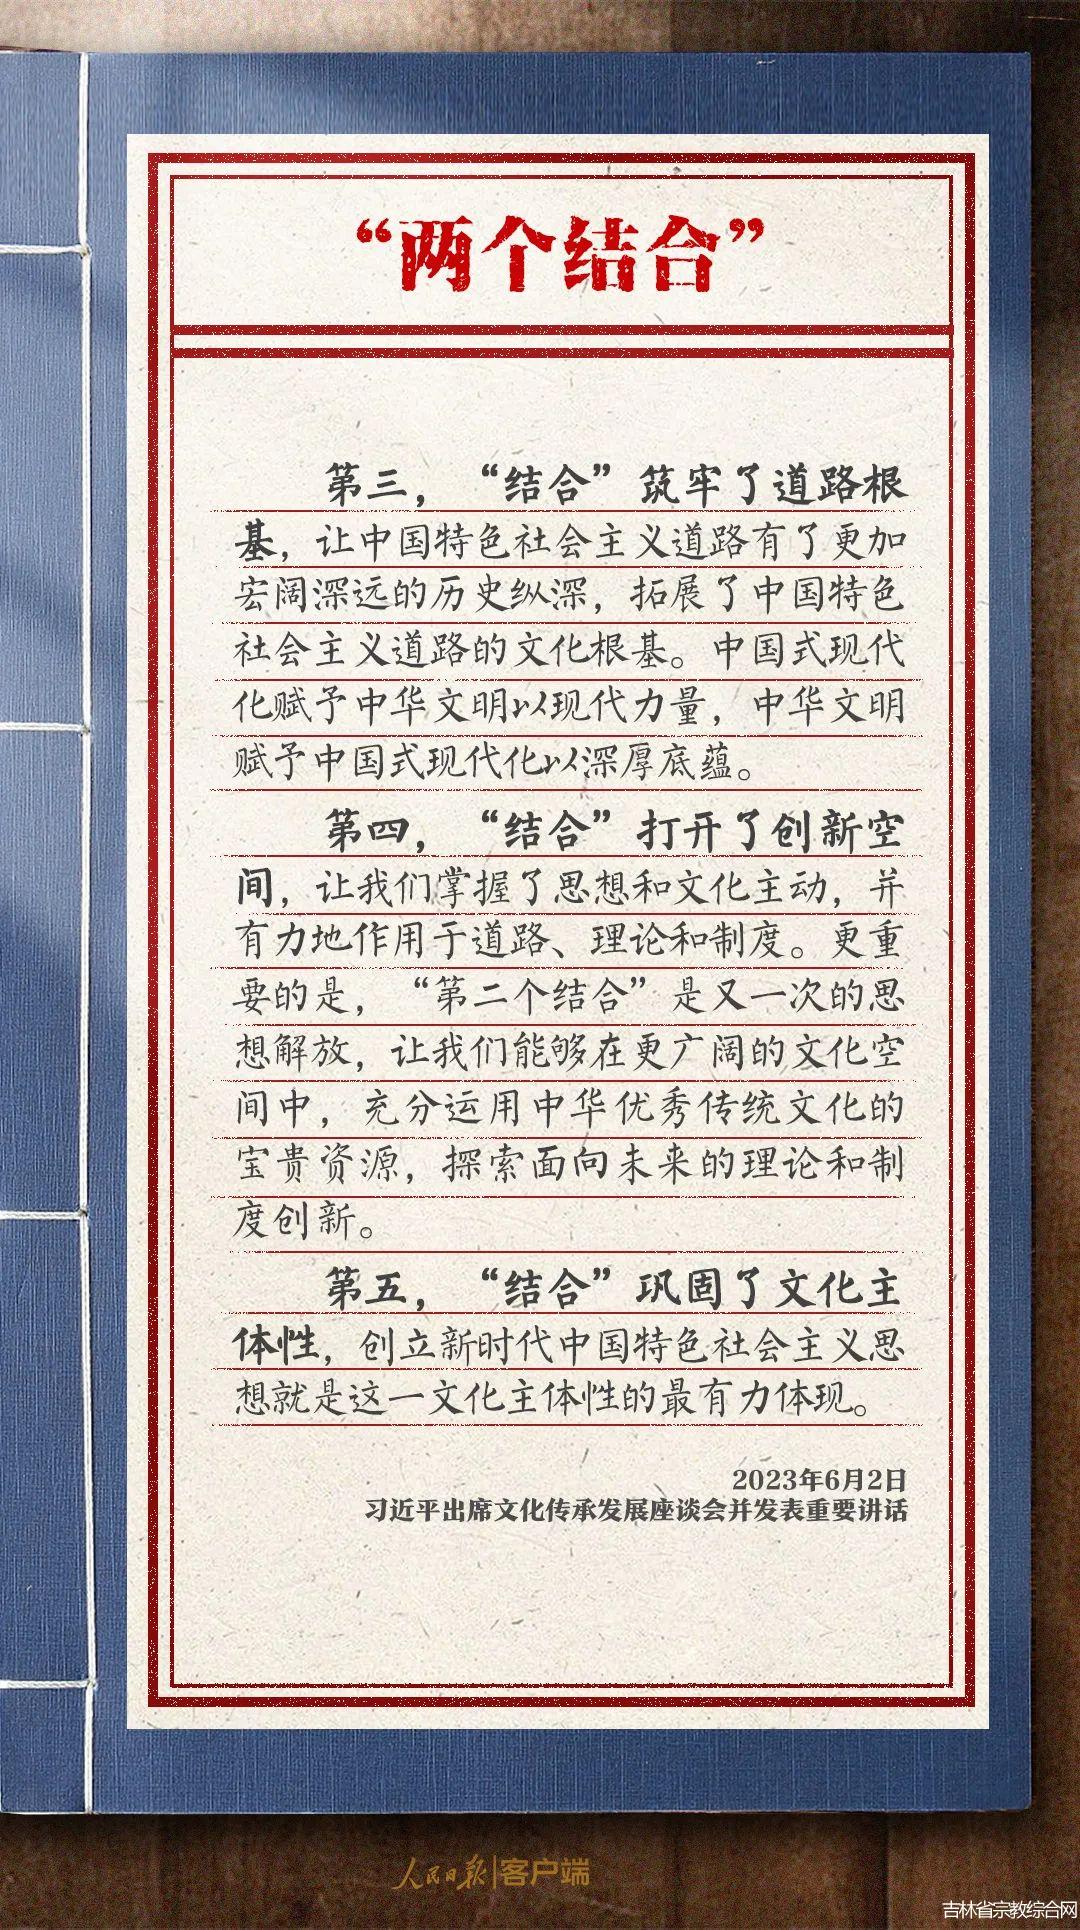 “两个结合”
第三，“结合”筑牢了道路根
基，让中国特色社会主义道路有了更加
宏阔深远的历史纵深，拓展了中国特色
社会主义道路的文化根基。中国式现代
化赋予中华文明以现代力量，中华文明
赋予中国式现代化以深厚底蕴。
第四，“结合”打开了创新空
间，让我们掌握了思想和文化主动，并
有力地作用于道路、理论和制度。更重
要的是，“第二个结合”是又一次的思
想解放，让我们能够在更广阔的文化空
间中，充分运用中华优秀传统文化的
宝贵资源，探索面向未来的理论和制
度创新。
第五，“结合”巩固了文化主
体性，创立新时代中国特色社会主义思
想就是这一文化主体性的最有力体现。
2023年6月2日
习近平出席文化传承发展座谈会并发表重要讲话
人民日报|客户端
吉林省宗教综合网